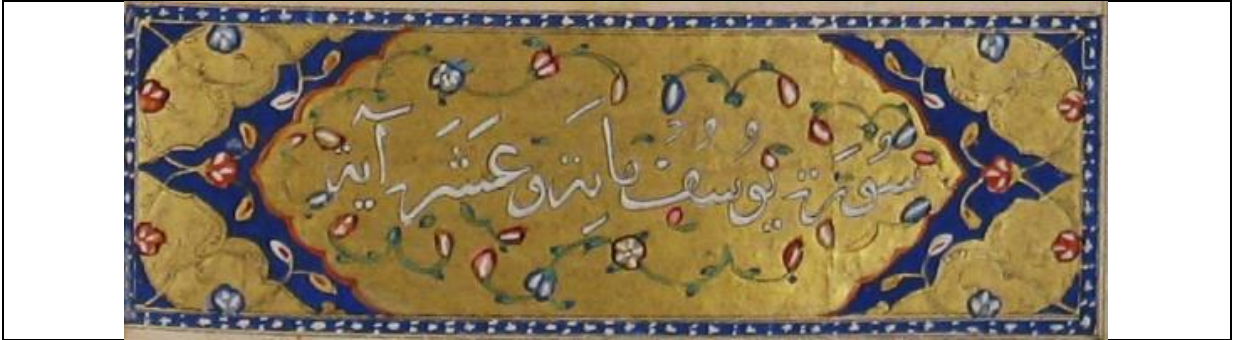 سُورَة يُوسُفُ مِايَة وَعَشَر آيَة